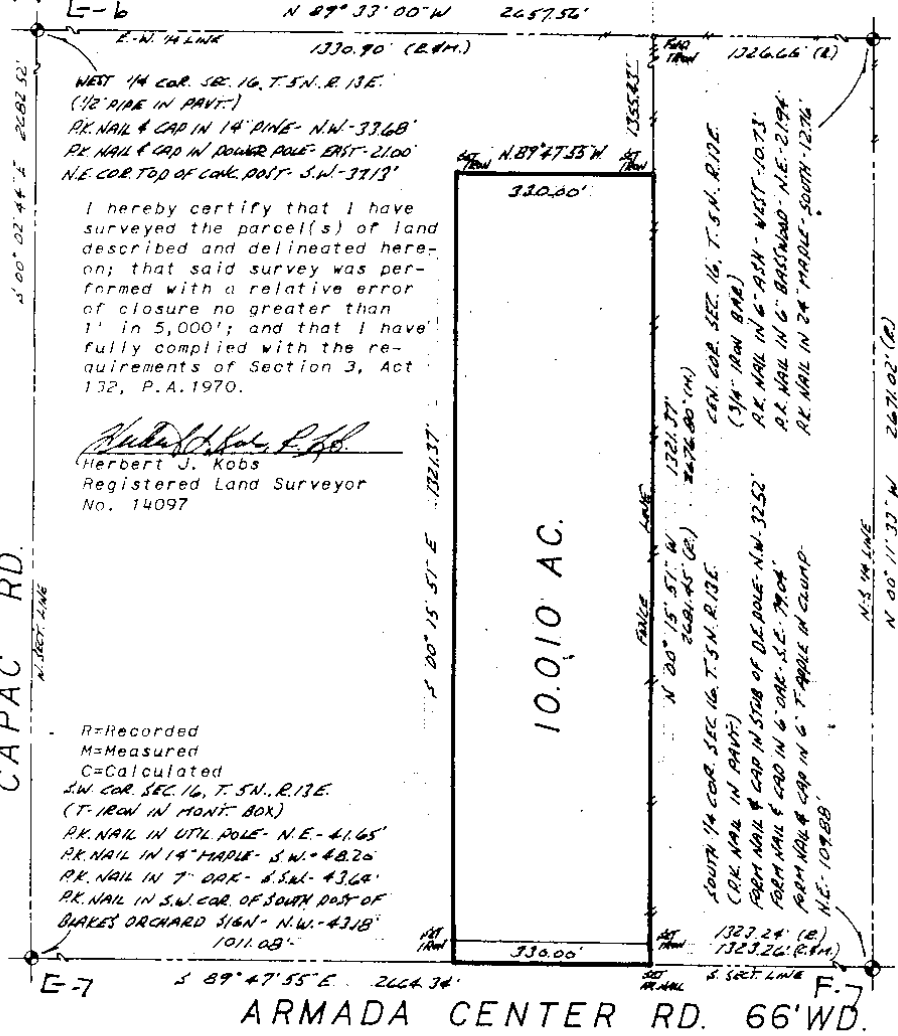 E-6
N 89° 33' 00" W 2657.56'
E.-W. 1/4 LINE
1330.90' (R.&M.)
FND IRON
1326.66' (R)
WEST 1/4 COR. SEC. 16, T. 5 N., R. 13 E.
(1/2" PIPE IN PAVT.)
P.K. NAIL & CAP IN 14" PINE - N.W. - 33.68'
P.K. NAIL & CAP IN POWER POLE - EAST - 21.00'
N.E. COR. TOP OF CONC. POST - S.W. - 37.13'
S 00° 02' 44" E 2682.52'
1355.43'
SET IRON
N. 89° 47' 55" W
SET IRON
330.00'
I hereby certify that I have
surveyed the parcel(s) of land
described and delineated here-
on; that said survey was per-
formed with a relative error
of closure no greater than
1' in 5,000'; and that I have
fully complied with the re-
quirements of Section 3, Act
132, P.A.1970.
Herbert J. Kobs
Registered Land Surveyor
No. 14097
S 00° 15' 51" E 1321.37'
10.010 AC.
FENCE LINE
N 00° 15' 51" W 1321.37'
2681.45' (R.) 2676.80' (M.)
CEN. COR. SEC. 16, T. 5 N., R. 13 E.
(3/4" IRON BAR)
P.K. NAIL IN 6" ASH - WEST - 10.73'
P.K. NAIL IN 6" BASSWOOD - N.E. - 21.94'
P.K. NAIL IN 24" MAPLE - SOUTH - 12.76'
N.-S. 1/4 LINE
N 00° 11' 33" W 2671.02' (R.)
SOUTH 1/4 COR. SEC. 16, T. 5 N., R. 13 E.
(P.K. NAIL IN PAVT.)
FORM NAIL & CAP IN STUB OF D.E. POLE - N.W. - 32.52'
FORM NAIL & CAP IN 6" OAK - S.E. - 79.04'
FORM NAIL & CAP IN 6" T-APPLE IN CLUMP -
N.E. - 109.88'
CAPAC RD.
W. SECT. LINE
R=Recorded
M=Measured
C=Calculated
S.W. COR. SEC. 16, T. 5 N., R. 13 E.
(T-IRON IN MONT. BOX)
P.K. NAIL IN UTIL. POLE - N.E. - 41.65'
P.K. NAIL IN 14" MAPLE - S.W. - 48.20'
P.K. NAIL IN 7" OAK - S.S.W. - 43.64'
P.K. NAIL IN S.W. COR. OF SOUTH POST OF
BLAKES ORCHARD SIGN - N.W. - 43.18'
1011.08'
SET IRON
330.00'
SET IRON
1323.24' (R.)
1323.26' (R.&M.)
E-7
S 89° 47' 55" E 2664.34'
SET P.K. NAIL
S. SECT. LINE
F-7
ARMADA CENTER RD. 66' WD.